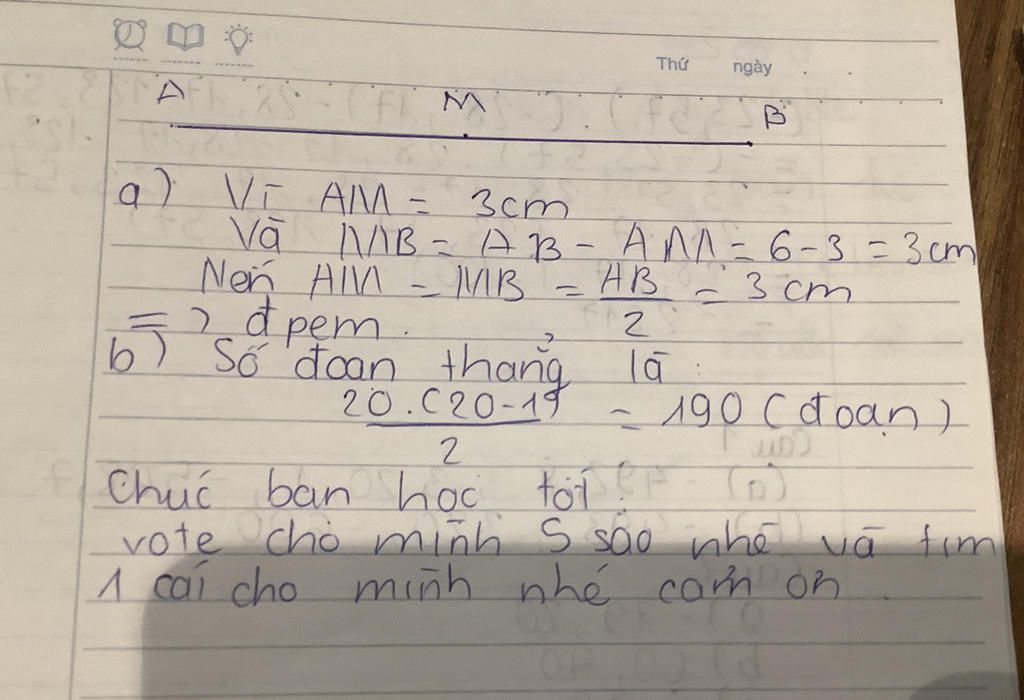 Thứ ngày
A M B
a) Vì AM = 3cm
Và MB = AB - AM = 6-3 = 3cm
Nên AM = MB = AB/2 = 3cm
=> đpcm.
b) Số đoạn thẳng là:
20.(20-1)/2 = 190 (đoạn)
Chúc bạn học tốt!
vote cho mình 5 sao nhé và tim
1 cái cho mình nhé cảm ơn.